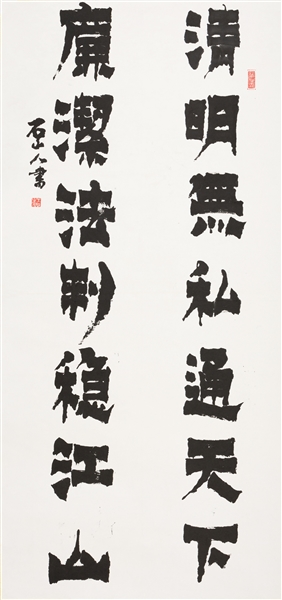 清明無私通天下
廉潔法制稳江山
石山人書